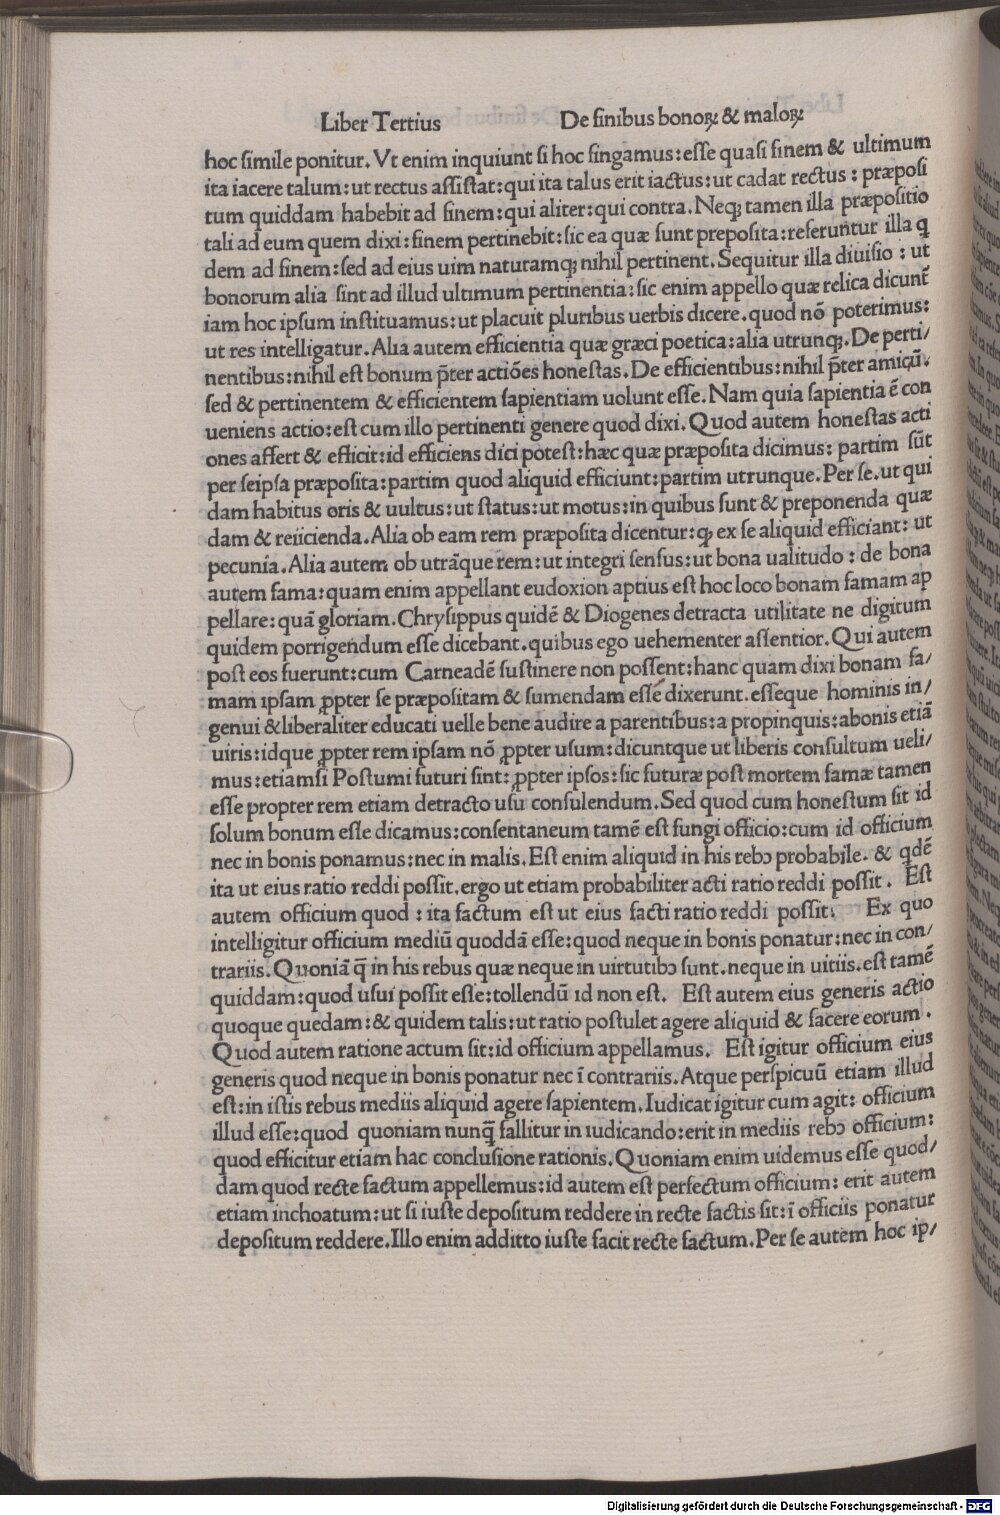 Liber Tertius De finibus bonoꝝ & maloꝝ
hoc simile ponitur. Vt enim inquiunt si hoc fingamus: esse quasi finem & ultimum
ita iacere talum: ut rectus assistat: qui ita talus erit iactus: ut cadat rectus: præposi
tum quiddam habebit ad finem: qui aliter: qui contra. Neqꝫ tamen illa præpositio
tali ad eum quem dixi: finem pertinebit: sic ea quæ sunt preposita: referuntur illa q̄
dem ad finem: sed ad eius uim naturamqꝫ nihil pertinent. Sequitur illa diuisio: ut
bonorum alia sint ad illud ultimum pertinentia: sic enim appello quæ relica dicunt̄
iam hoc ipsum instituamus: ut placuit pluribus uerbis dicere. quod nō poterimus:
ut res intelligatur. Alia autem efficientia quæ græci poetica: alia utrunqꝫ. De perti/
nentibus: nihil est bonum p̄ter actiōes honestas. De efficientibus: nihil p̄ter amicū.
sed & pertinentem & efficientem sapientiam uolunt esse. Nam quia sapientia ē con
ueniens actio: est cum illo pertinenti genere quod dixi. Quod autem honestas acti
ones affert & efficit: id efficiens dici potest: hæc quæ præposita dicimus: partim sūt
per seipsa præposita: partim quod aliquid efficiunt: partim utrunque. Per se. ut qui
dam habitus oris & uultus: ut status: ut motus: in quibus sunt & preponenda quæ
dam & reiicienda. Alia ob eam rem præposita dicentur: qꝫ ex se aliquid efficiant: ut
pecunia. Alia autem ob utrāque rem: ut integri sensus: ut bona ualitudo: de bona
autem fama: quam enim appellant eudoxion aptius est hoc loco bonam famam ap
pellare: quā gloriam. Chrysippus quidē & Diogenes detracta utilitate ne digitum
quidem porrigendum esse dicebant. quibus ego uehementer assentior. Qui autem
post eos fuerunt: cum Carneadē sustinere non possent: hanc quam dixi bonam fa/
mam ipsam ꝓpter se præpositam & sumendam esse dixerunt. esseque hominis in/
genui & liberaliter educati uelle bene audire a parentibus: a propinquis: abonis etiā
uiris: idque ꝓpter rem ipsam nō ꝓpter usum: dicuntque ut liberis consultum ueli/
mus: etiamsi Postumi futuri sint: ꝓpter ipsos: sic futuræ post mortem famæ tamen
esse propter rem etiam detracto usu consulendum. Sed quod cum honestum sit id
solum bonum esse dicamus: consentaneum tamē est fungi officio: cum id officium
nec in bonis ponamus: nec in malis. Est enim aliquid in his rebꝰ probabile. & qdē
ita ut eius ratio reddi possit. ergo ut etiam probabiliter acti ratio reddi possit. Est
autem officium quod: ita factum est ut eius facti ratio reddi possit. Ex quo
intelligitur officium mediū quoddā esse: quod neque in bonis ponatur: nec in con/
trariis. Quoniā q̄ in his rebus quæ neque in uirtutibꝰ sunt. neque in uitiis. est tamē
quiddam: quod usui possit esse: tollendū id non est. Est autem eius generis actio
quoque quedam: & quidem talis: ut ratio postulet agere aliquid & facere eorum.
Quod autem ratione actum sit: id officium appellamus. Est igitur officium eius
generis quod neque in bonis ponatur nec ī contrariis. Atque perspicuū etiam illud
est: in istis rebus mediis aliquid agere sapientem. Iudicat igitur cum agit: officium
illud esse: quod quoniam nunq̄ fallitur in iudicando: erit in mediis rebꝰ officium:
quod efficitur etiam hac conclusione rationis. Quoniam enim uidemus esse quod/
dam quod recte factum appellemus: id autem est perfectum officium: erit autem
etiam inchoatum: ut si iuste depositum reddere in recte factis sit: ī officiis ponatur
depositum reddere. Illo enim additto iuste facit recte factum. Per se autem hoc ip/
Digitalisierung gefördert durch die Deutsche Forschungsgemeinschaft - DFG